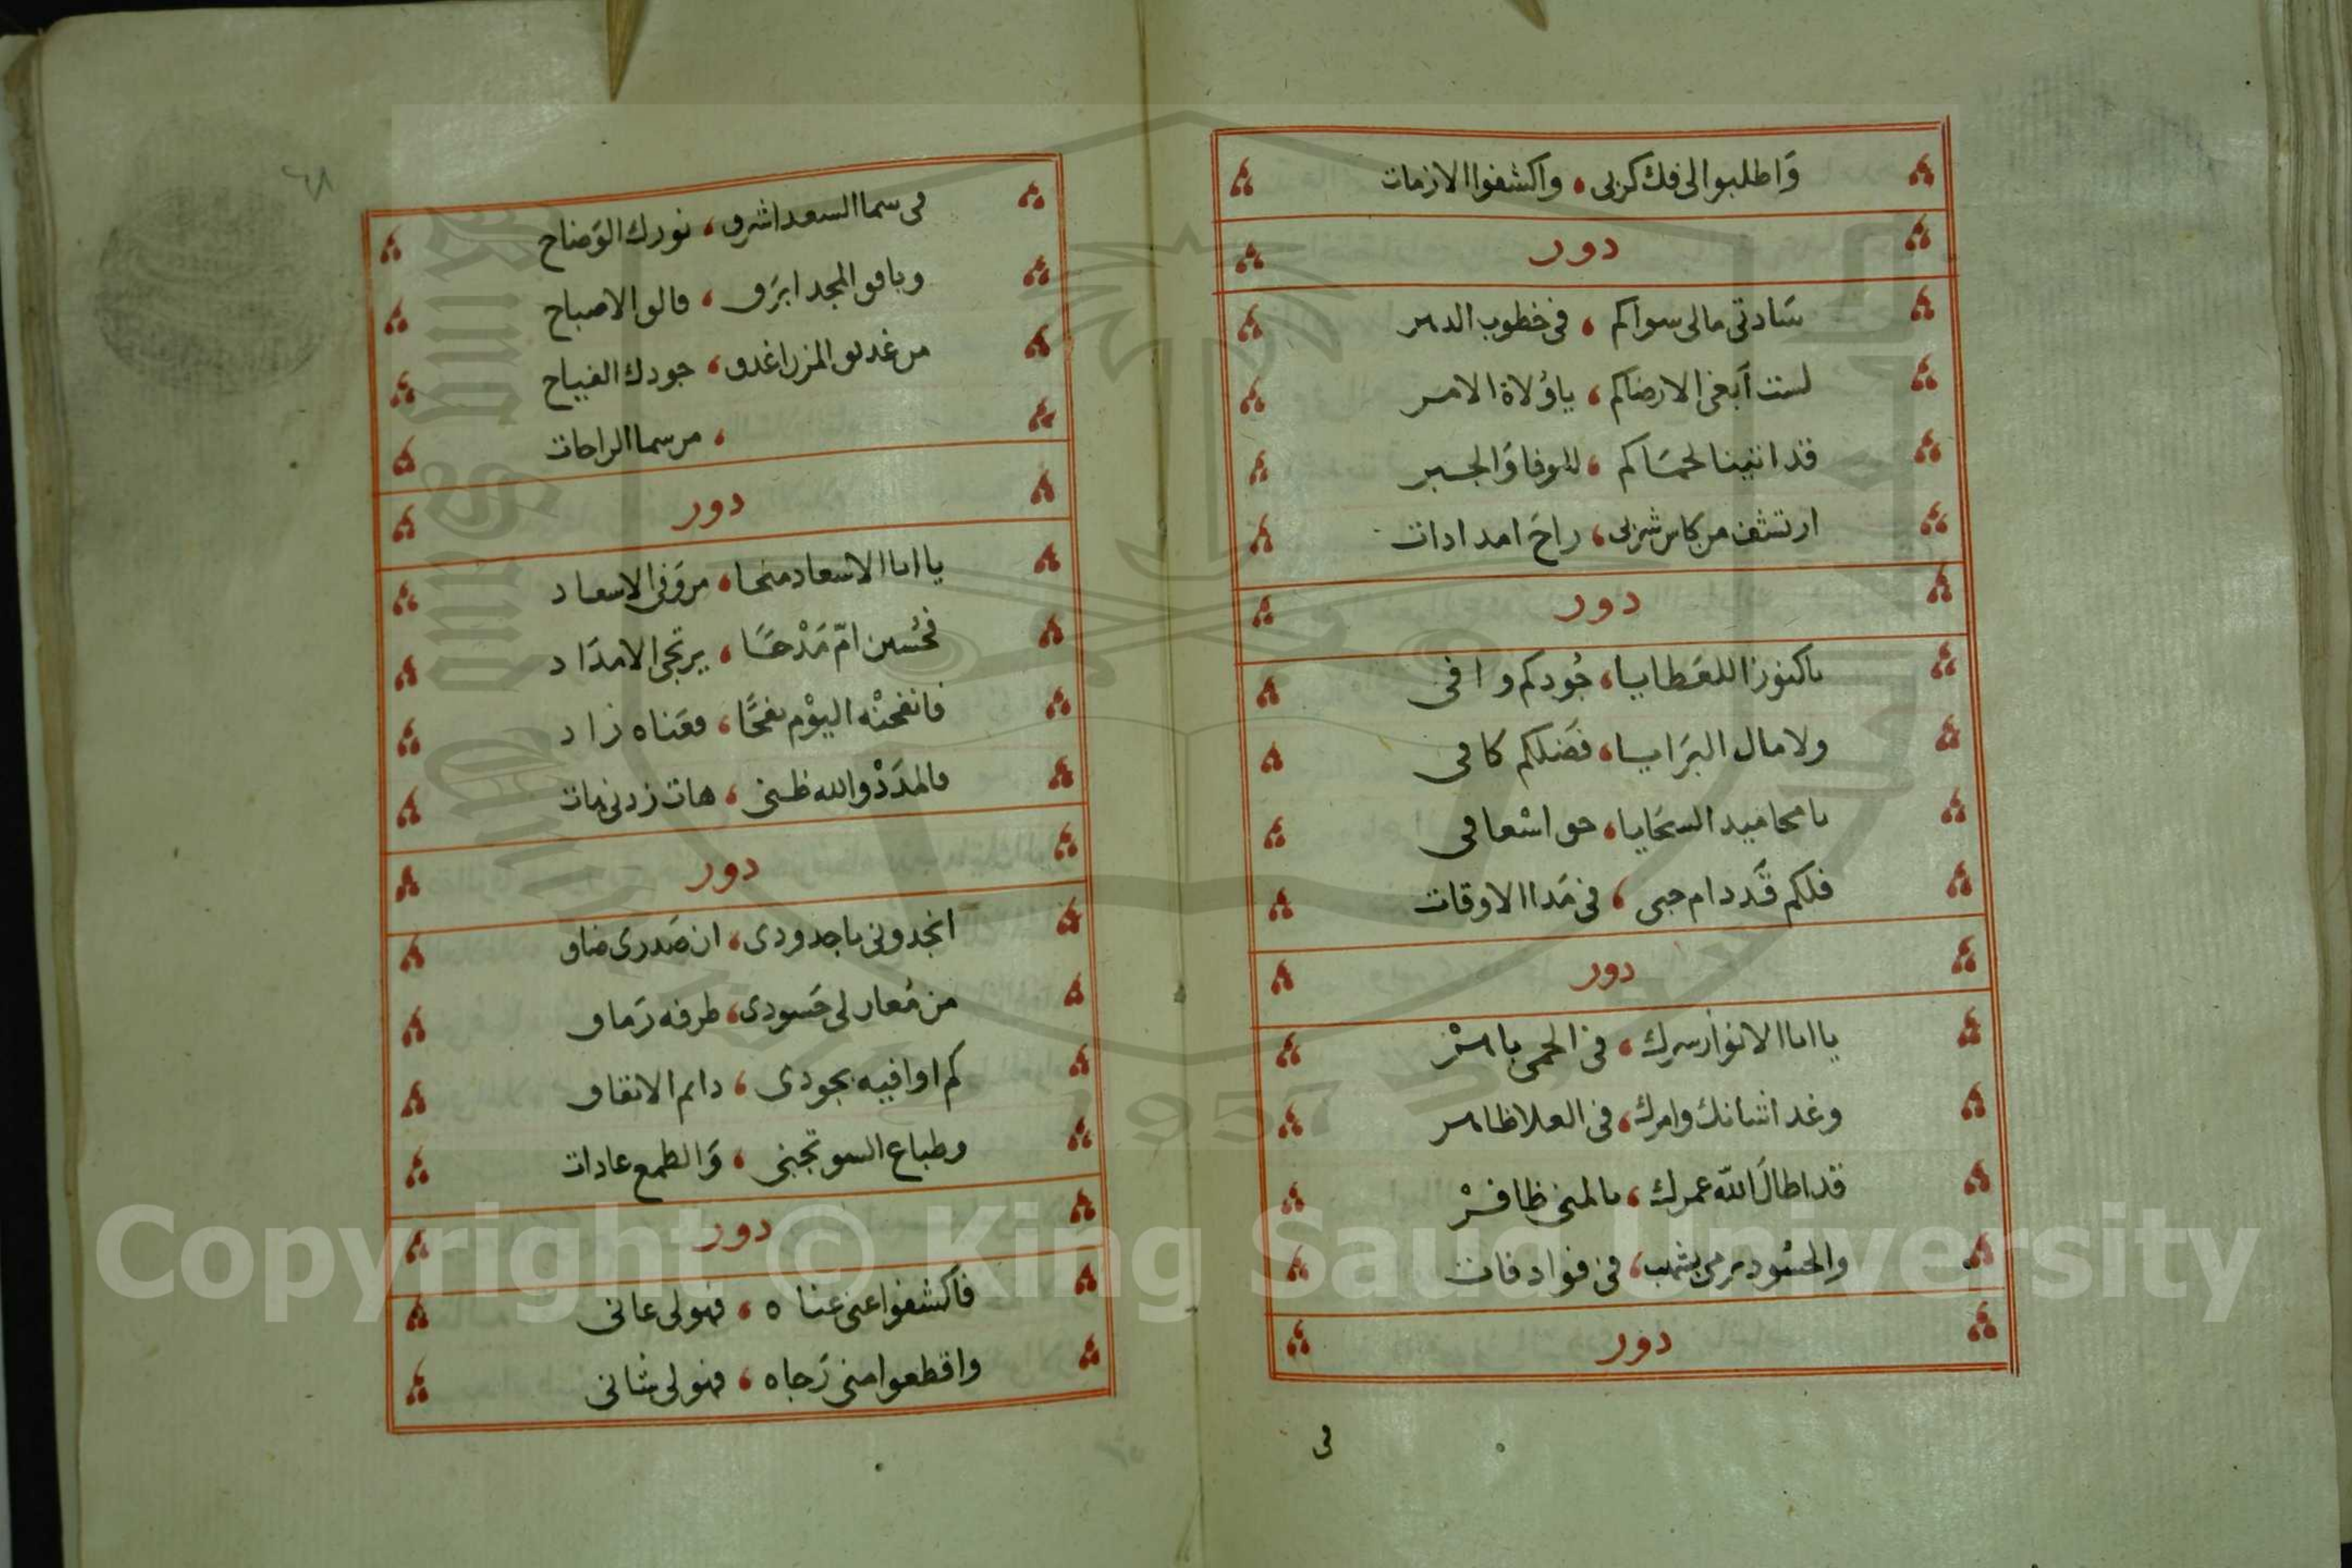 وَاطلبوا لى فك كربى ، واكشفوا الازمات
دور
سَادتى مالى سواكم ، فى خطوب الدهر
لست أبغى الا رضاكم ، ياوُلاة الامـر
قد اتيينا لحمَاكم ، للوفا وَالجـبر
ارتشف من كاس شربى ، راحَ امدادات
دور
ياكنوز اللعَطايا ، جُودكم وافى
ولامال البَرايا ، فَضلكم كافى
يامحاميد السجَايا ، حق اسْعافى
فلكم قَد دام حبى ، فى مَدا الاوقات
دور
يا ابا الانوار سرك ، فى الحمى باهرْ
وغدا شانك وامرك ، فى العلا ظاهر
قد اطالَ اللّه عمرك ، بالمنى ظافرْ
والحسُود مرمى بشهب ، فى فواد فات
دور
فى
٦٨
فى سما السعد اشرق ، نورك الوَضاح
وبافق المجد ابرَق ، فالق الاصباح
من غدق المزن اغدق ، جودك الفياح
، من سما الراحات
دور
يا ابا الاسعاد منحا ، من وَفى الاسعاد
فحُسين امّ مَدْحًا ، يرتجى الامدَاد
فانفحنْه اليوْم نفحًا ، فعَناه زاد
فالمدَدْ والله ظنى ، هات زدنى هات
دور
انجدونى ياجدودى ، ان صَدرى ضاق
من مُعار لى حَسودى ، طرفه رَماق
كم اوافيه بجودى ، دايم الانفاق
وطباع السو تجنى ، وَالطمع عادات
دور
فاكشفوا عنى عناه ، فهو لى عانى
واقطعوا منى رَجاه ، فهو لى شانى
Copyright © King Saud University
1957